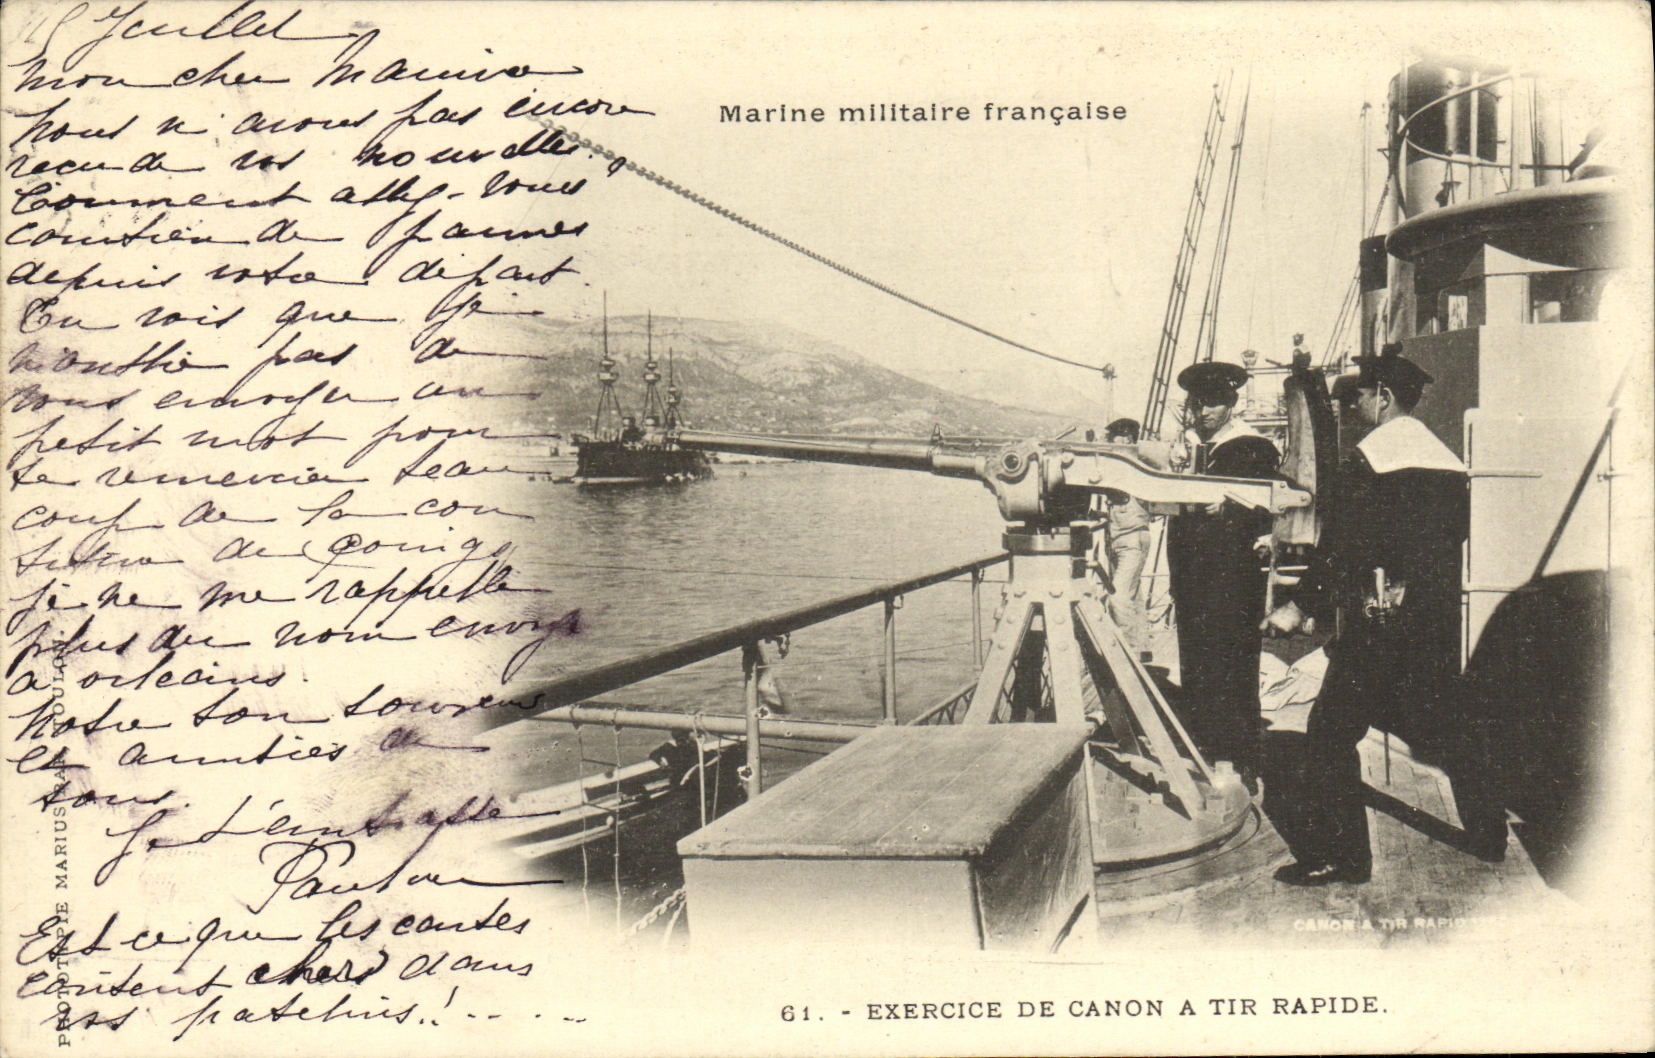 15 Juillet
Mon cher Maurice
Nous n'avons pas encore
recu de vos nouvelles.
Comment allez-vous
combien de pannes
depuis votre départ.
Tu vois que je
n'oublie pas de
vous envoyer un
petit mot pour
te remercier beau
coup de la con
de
je ne me rappelle
plus du nom envoyé
a orleans.
Notre bon souvenir
et amitiés de
tous.
Je t'embrasse
Est ce que les cartes
coûtent chers dans
vos patelins!.....
Marine militaire française
CANON A TIR RAPIDE
61. - EXERCICE DE CANON A TIR RAPIDE.
PHOTOTYPIE MARIUS BAR, TOULON.